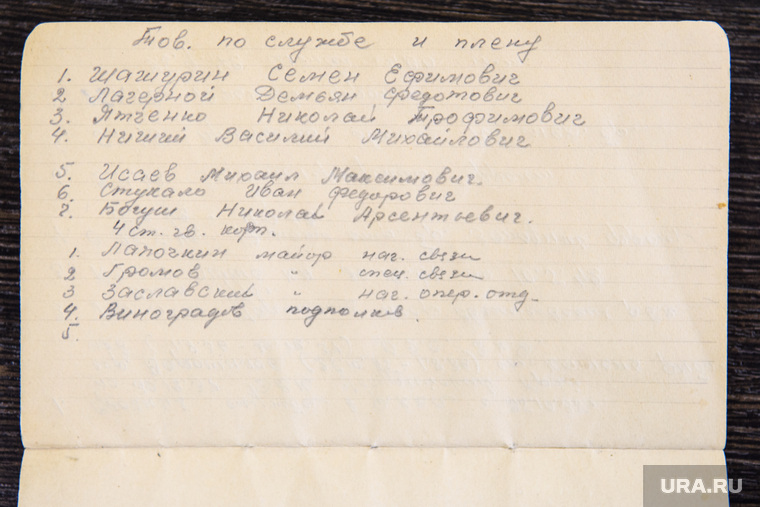 Тов. по службе и плену
1. Шашурин Семен Ефимович
2 Лагерной Демьян Федотович
3. Ятченко Николай Трофимович
4. Нищий Василий Михайлович
5. Исаев Михаил Максимович.
6. Стукало Иван Федорович
7. Богуш Николай Арсентьевич.
4 ст. гв. корп.
1. Лапочкин майор нач. связи
2 Громов " спец. связи
3 Заславский " нач. опер. отд.
4. Виноградов подполков.
5.
URA.RU